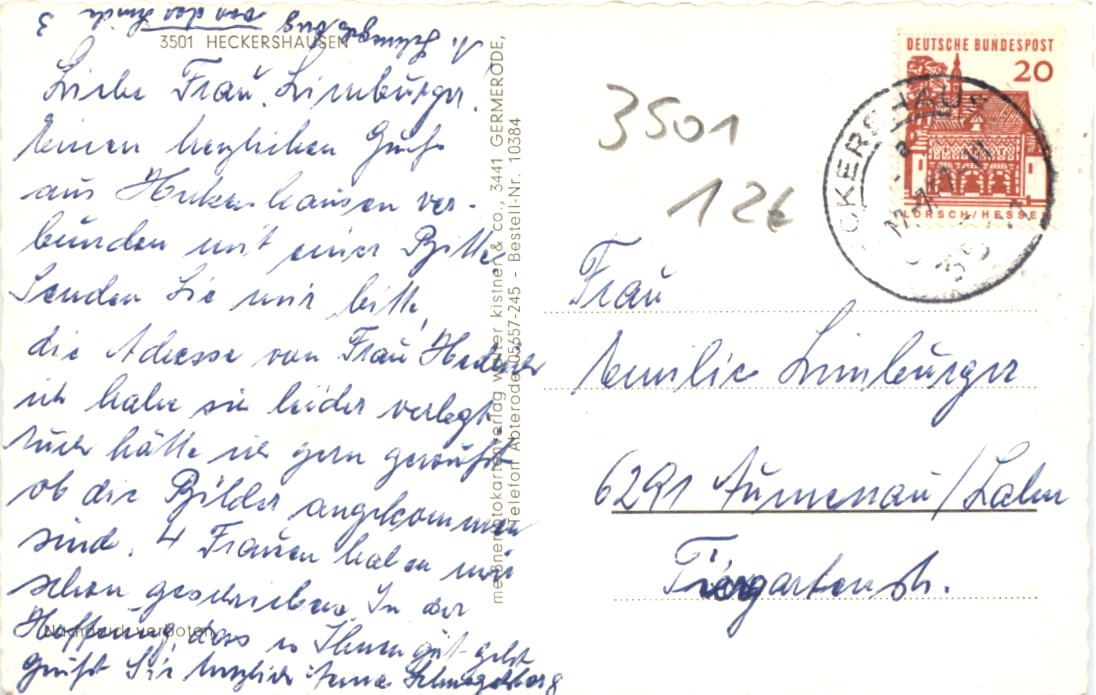 3501 HECKERSHAUSEN
Liebe Frau Limburger.
Einen herzlichen Gruß
aus Heckershausen ver-
bunden mit einer Bitte
Senden Sie mir bitte,
die Adresse von Frau
ich habe sie leider verlegt.
Auch hätte ich gern gewußt
ob die Bilder angekommen
sind. 4 Frauen haben mir
schon geschrieben. In der
Hoffnung, dass es Ihnen gut geht
Grüßt Sie herzlich Anna
Nachdruck verboten
meißner fotokartenverlag walter kistner & co., 3441 GERMERODE,
Telefon Abterode 05657-245 - Bestell-Nr. 10384
DEUTSCHE BUNDESPOST
20
LORSCH/HESSEN
3501
12€
Frau
Emilie Limburger
6291 Aumenau/Lahn
Tiergartenstr.